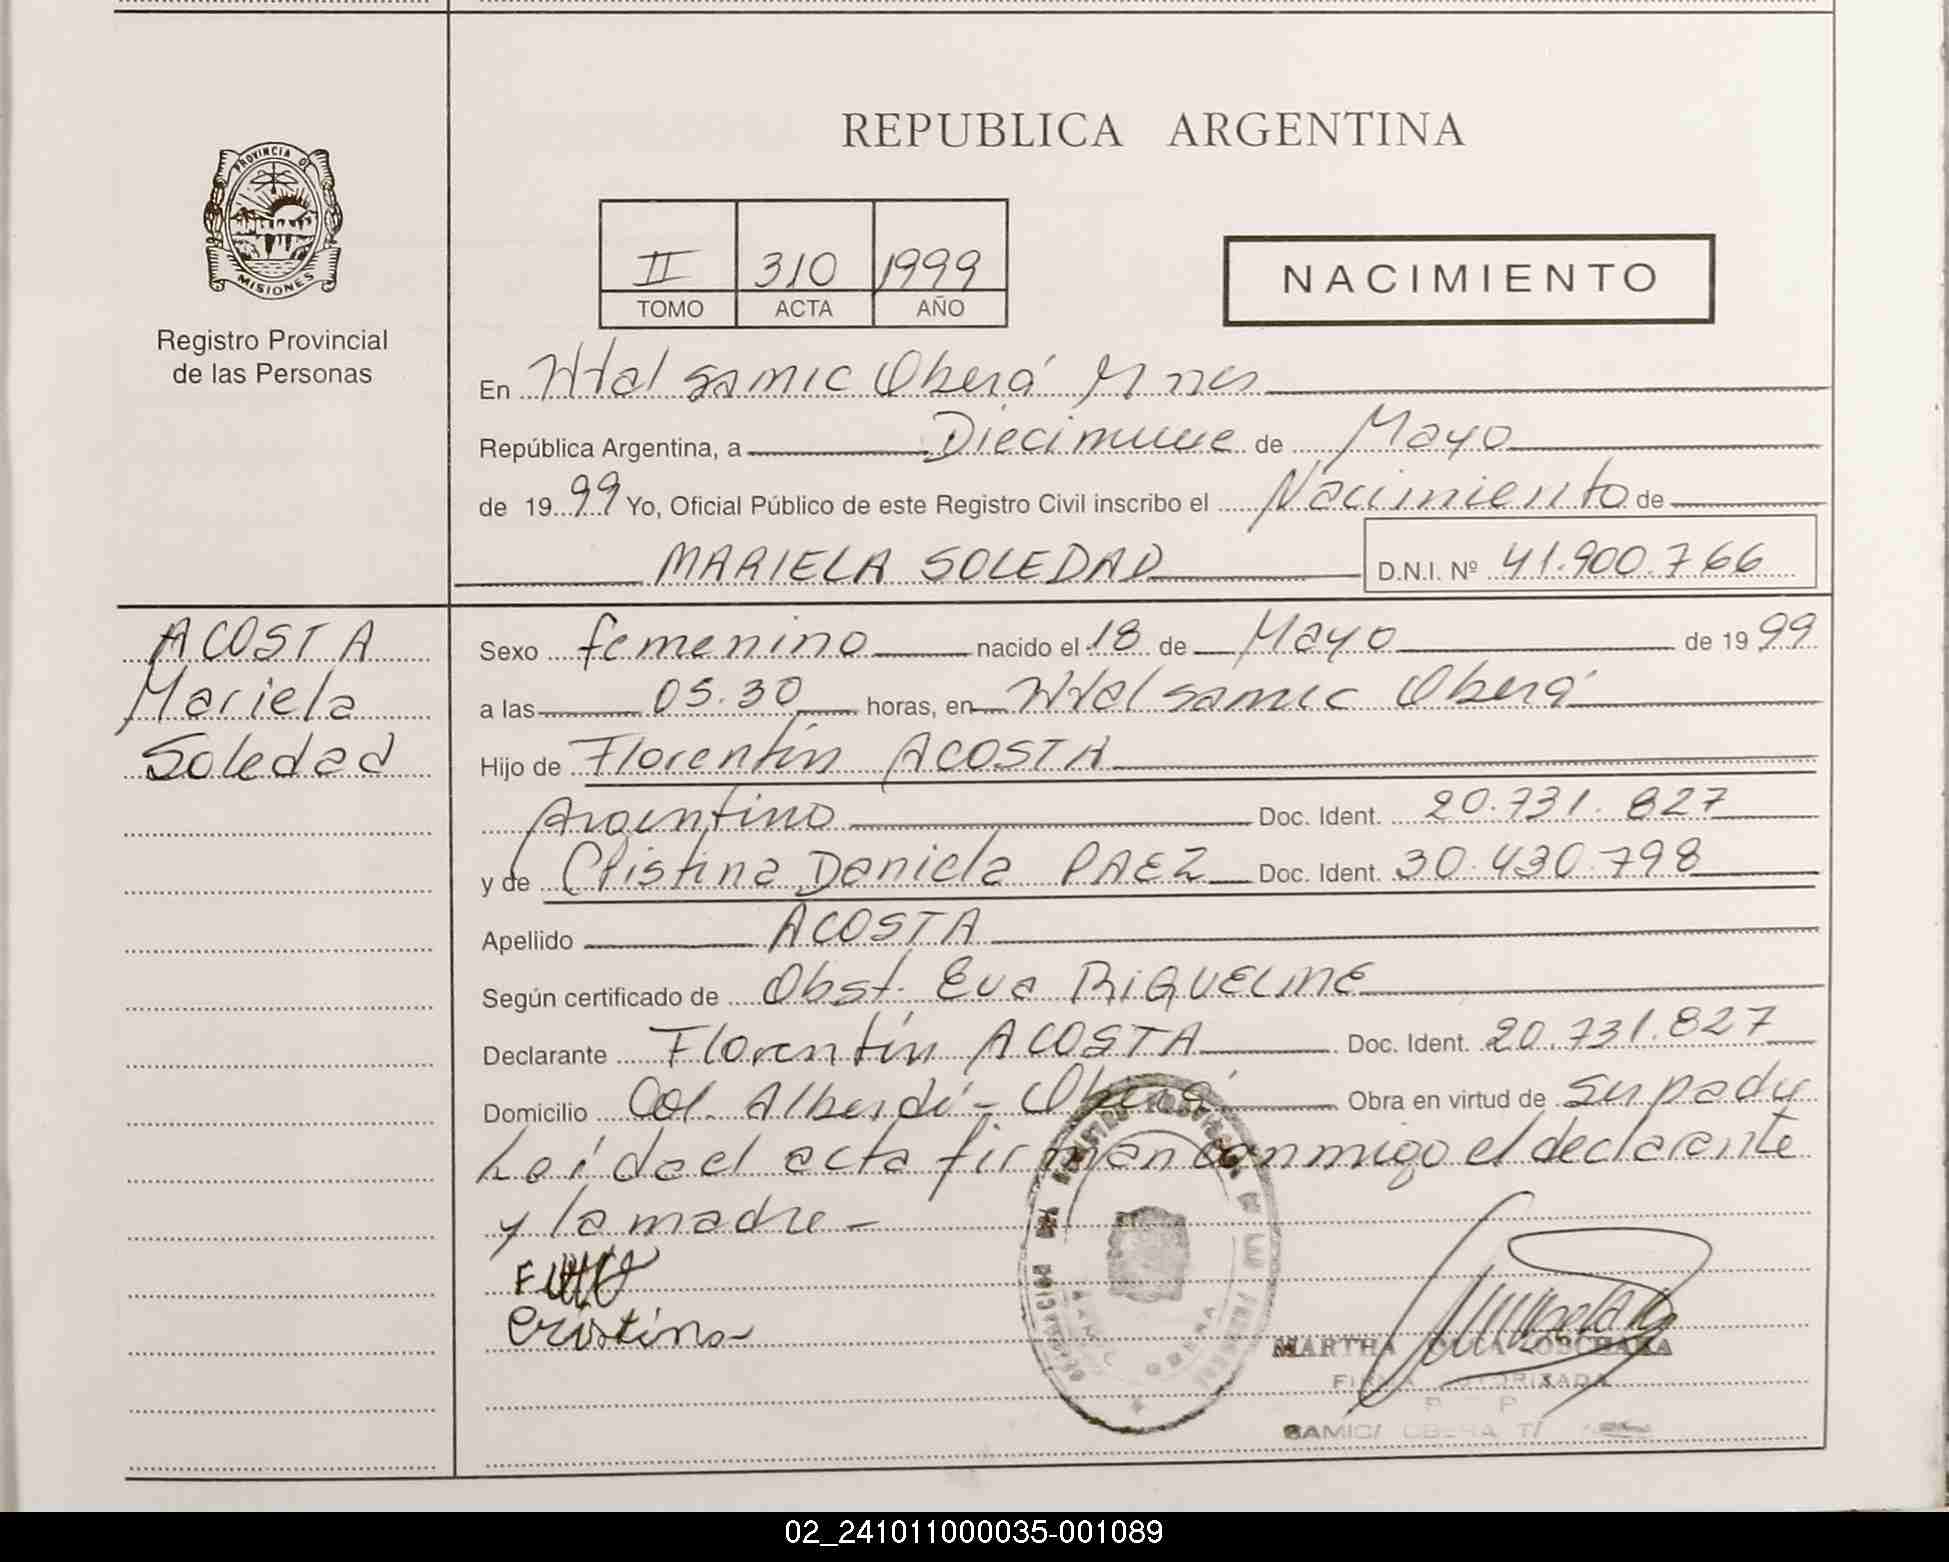 REPUBLICA ARGENTINA
PROVINCIA DE
MISIONES
Registro Provincial
de las Personas
II 310 1999
TOMO ACTA AÑO
NACIMIENTO
En Htal Samic Oberá Mnes
República Argentina, a Diecinueve de Mayo
de 1999 Yo, Oficial Público de este Registro Civil inscribo el Nacimiento de
MARIELA SOLEDAD D.N.I. Nº 41.900.766
ACOSTA
Mariela
Soledad
Sexo femenino nacido el 18 de Mayo de 1999
a las 05.30 horas, en Htal Samic Oberá
Hijo de Florentín ACOSTA
Argentino Doc. Ident. 20.731.827
y de Cristina Daniela PAEZ Doc. Ident. 30.430.798
Apellido ACOSTA
Según certificado de Obst. Eva RIQUELME
Declarante Florentín ACOSTA Doc. Ident. 20.731.827
Domicilio Col. Alberdi - Oberá Obra en virtud de su pad y
Leída el acta firman conmigo el declarante
y la madre -
Cristina
MARTHA OLGA
FIRMA AUTORIZADA
SAMIC/ OBERA
02_241011000035-001089